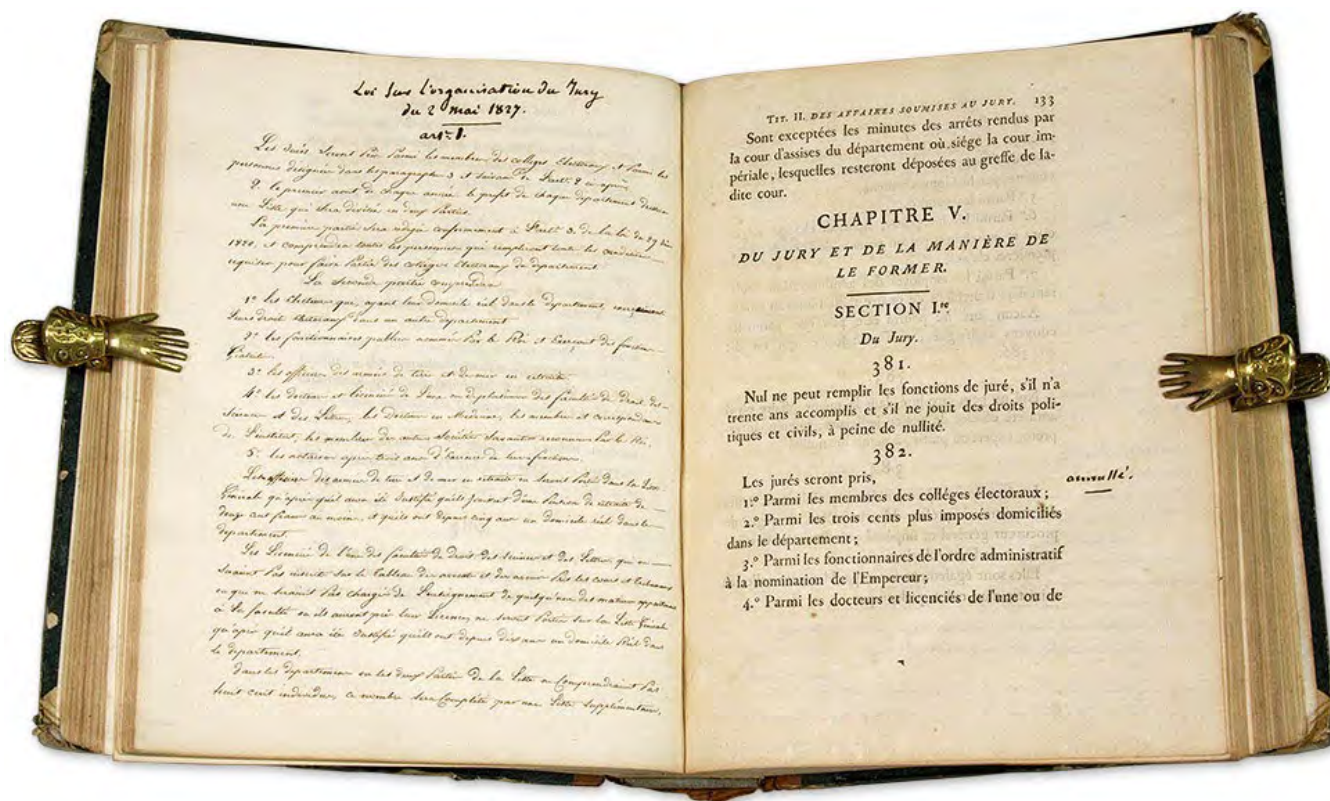 Loi sur l'organisation du Jury
du 2 mai 1827.
art. 1.
Les Jurés seront pris parmi les membres des colleges électoraux et parmi les
personnes désignées dans les paragraphes 3 et suivant de l'art. 2 ci après
2. le premier aout de chaque année le prefet de chaque departement dressera
une Liste qui sera divisée en deux Parties.
La premiere partie sera rédigée conformement à l'art. 3. de la loi du 29 Juin
1820, et comprendra toutes les personnes qui rempliront toutes les conditions
requises pour faire Partie des colleges électoraux du departement
La seconde partie comprendra
1.° les électeurs qui, ayant leur domicile réel dans le departement, exerceraient
leurs droits électoraux dans un autre departement
2.° les fonctionnaires publics nommés Par le Roi et Exerçant des fonctions
Gratuites.
3.° les officiers des armées de terre et de mer en retraite
4.° les docteurs et licenciés de l'une ou de plusieurs des facultés de droit, des
sciences et des Lettres, les docteurs en Medecine, les membres et correspondans
de l'institut, les membres des autres sociétés savantes reconnues Par le Roi,
5.° les notaires après trois ans d'Exercice de leurs fonctions.
Les officiers des armées de terre et de mer en retraite ne seront Portés dans la Liste
Générale qu'après qu'il aura été Justifié qu'ils Jouissent d'une Pension de retraite de
douze cent francs au moins, et qu'ils ont depuis cinq ans un domicile réel dans le
departement.
Les Licenciés de l'une des facultés de droit des sciences et des Lettres, qui ne
seraient Pas inscrits sur le tableau des avocats et des avoués Près les cours et tribunaux
ou qui ne seraient Pas chargés de l'enseignement de quelqu'une des matieres appartenant
à la faculté où ils auront pris leur Licence, ne seront Portés sur la Liste Générale
qu'après qu'il aura été Justifié qu'ils ont depuis dix ans un domicile Réel dans
le departement.
dans les departemens ou les deux Parties de la Liste ne Comprendraient Pas
huit cent individus, ce nombre sera Complété par une Liste supplémentaire,
TIT. II. DES AFFAIRES SOUMISES AU JURY. 133
Sont exceptées les minutes des arrêts rendus par
la cour d'assises du département où siége la cour im-
périale, lesquelles resteront déposées au greffe de la-
dite cour.
CHAPITRE V.
DU JURY ET DE LA MANIÈRE DE
LE FORMER.
SECTION I.re
Du Jury.
381.
Nul ne peut remplir les fonctions de juré, s'il n'a
trente ans accomplis et s'il ne jouit des droits poli-
tiques et civils, à peine de nullité.
382.
Les jurés seront pris, annullé.
1.° Parmi les membres des colléges électoraux ;
2.° Parmi les trois cents plus imposés domiciliés
dans le département ;
3.° Parmi les fonctionnaires de l'ordre administratif
à la nomination de l'Empereur ;
4.° Parmi les docteurs et licenciés de l'une ou de